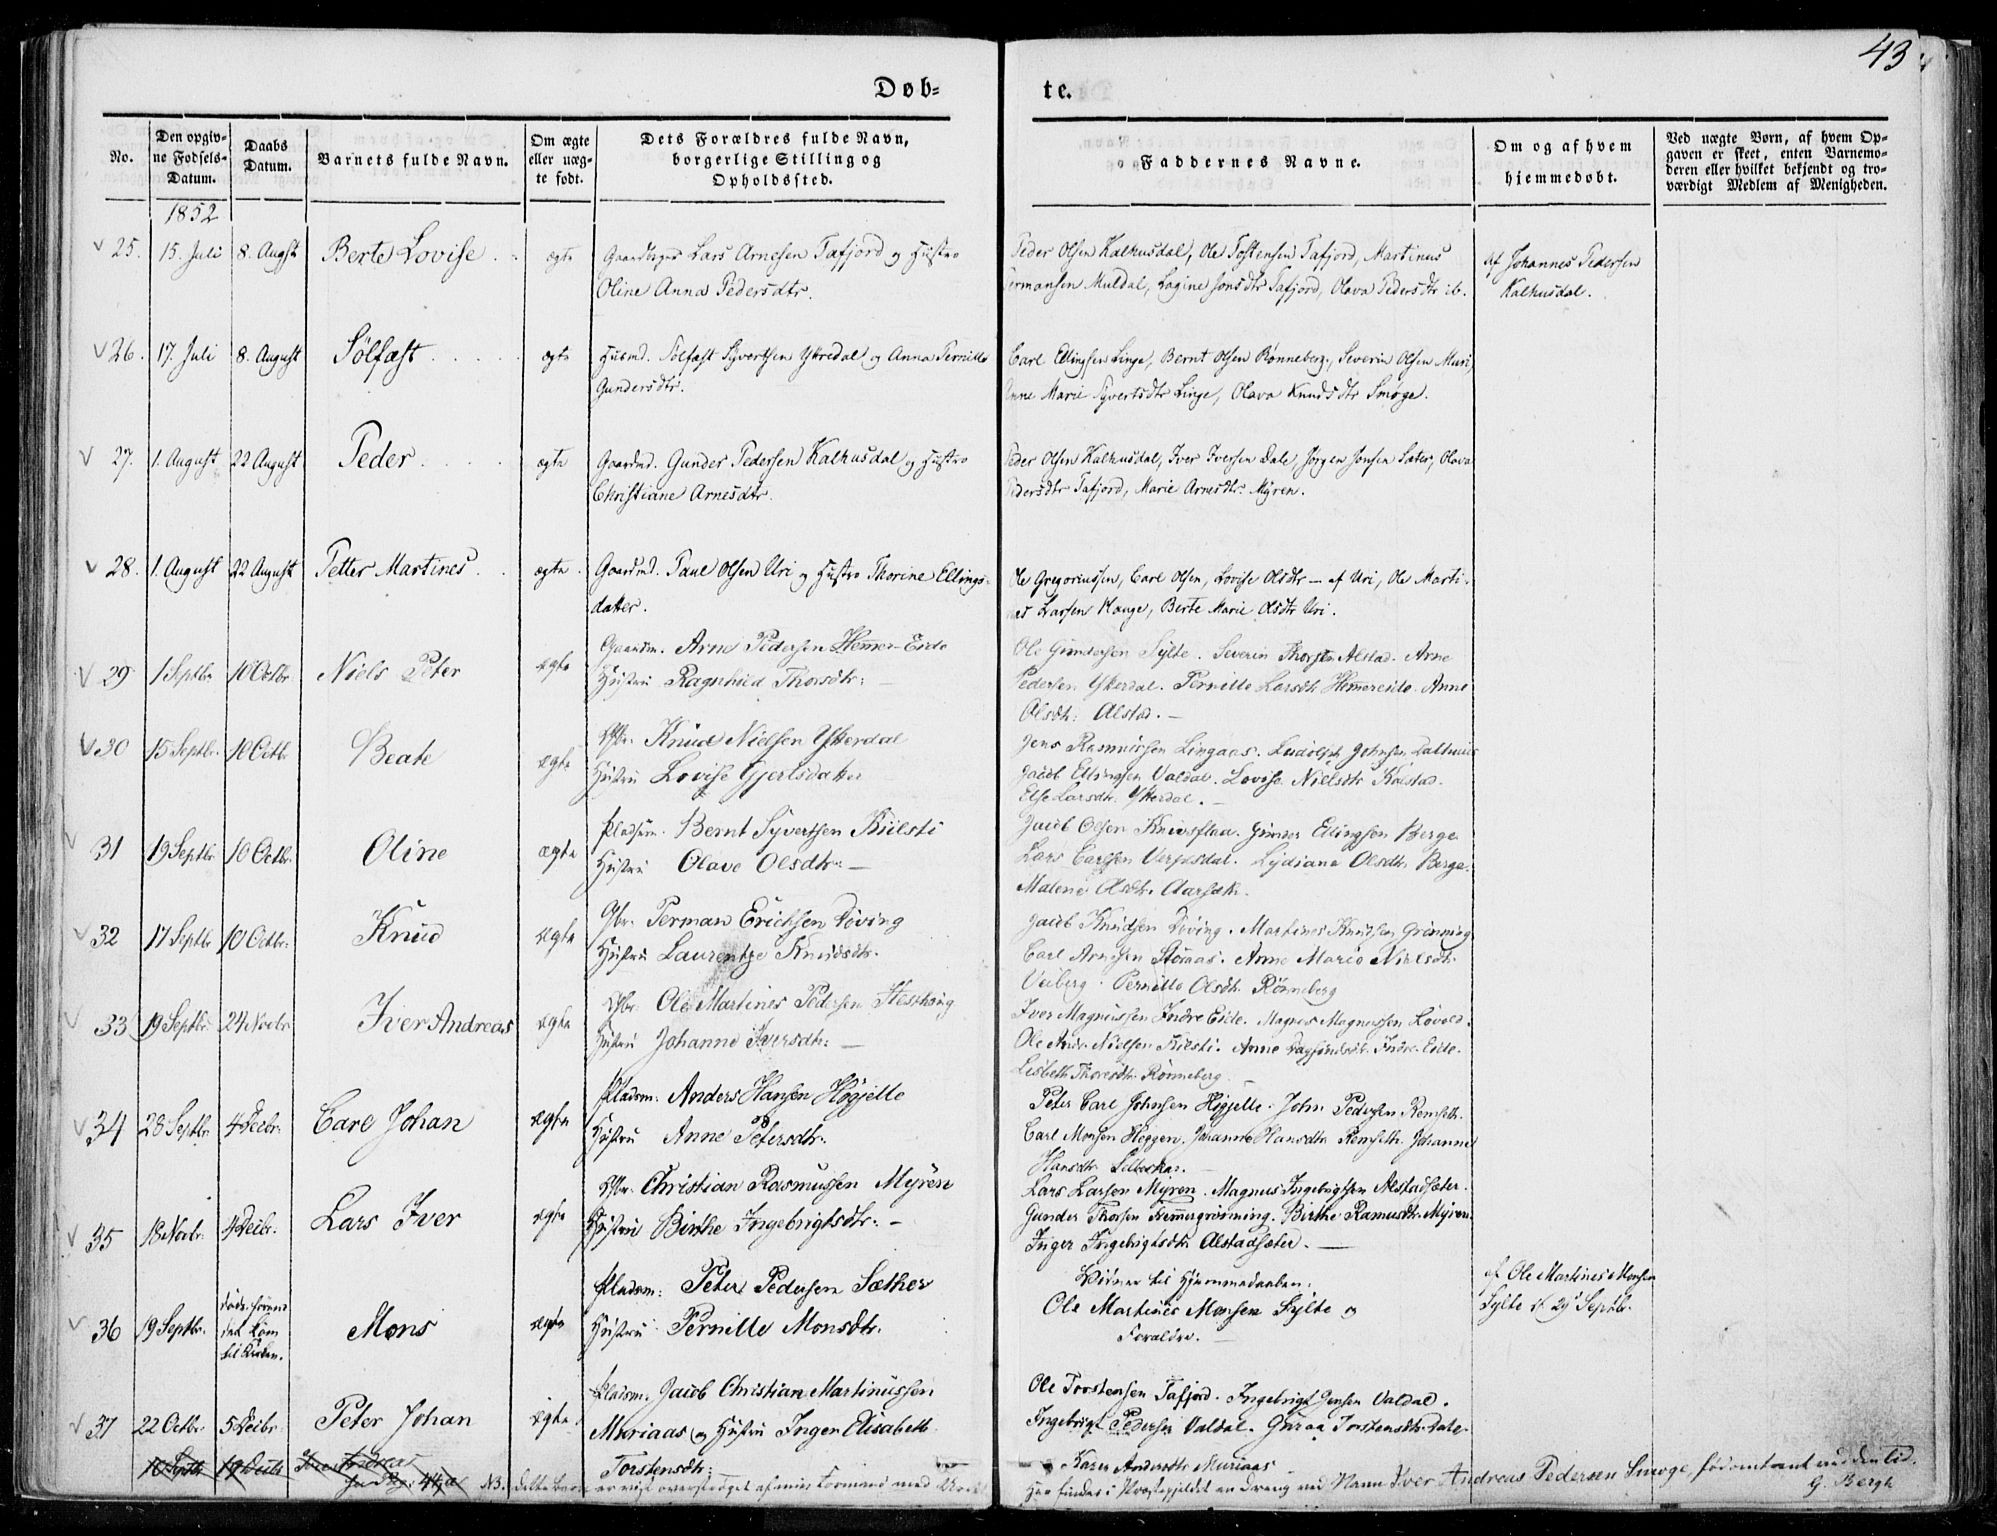 43
Døb=
te.
No.
Den opgiv-
ne Fødsels-
Datum.
Daabs
Datum.
Barnets fulde Navn.
Om ægte
eller uæg-
te født.
Dets Forældres fulde Navn,
borgerlige Stilling og
Opholdssted.
Faddernes Navne.
Om og af hvem
hjemmedøbt.
Ved uægte Børn, af hvem Op-
gaven er skeet, enten Barnemo-
deren eller hvilket bekjendt og tro-
værdigt Medlem af Menigheden.
1852
25. 15. Juli 8. Augst Berte Lovise ægte Lars Arnesen Tafjord og Hustro
Oline Anna Pedersdtr.
Peder Olsen Kalhusdal, Ole Tostensen Tafjord, Martinus
Muldal, Lagine Jonsdtr Tafjord, Olava Pedersdtr ib.
af Johannes Pedersen
Kalhusdal.
26. 17. Juli 8. August Sølfæst ægte Husmd. Sølfæst Syvertsen Ytredal og Anna Pernille
Gundersdtr.
Carl Ellingsen Linge, Bernt Olsen Rønneberg, Severin Olsen Muri,
Anne Marie Syvertsdtr Linge, Olava Knudsdtr Smøge.
27. 1. August 22 August Peder ægte Gaardmd. Gunder Pedersen Kalhusdal og Hustro
Christiane Arnesdtr.
Peder Olsen Kalhusdal, Iver Iversen Dale, Jørgen Jonsen Sæter, Olava
Pedersdtr Tafjord, Marie Arnesdtr Myren.
28. 1. August 22 August Petter Martines ægte Gaardmd. Paul Olsen Uri og Hustro Thorine Ellings-
datter.
Ole Gregoriussen, Carl Olsen, Lovise Olsdtr — af Uri, Ole Marti-
nes Larsen Hauge, Berte Marie Olsdtr Uri.
29 1 Septbr 10 Octbr. Niels Peter ægte Gaardm. Arne Pedersen Hemmer-Eide
Hustru Ragnhild Thorsdtr: —
Ole Gundersen Sylte. Severin Thorsten Alstad. Arne
Pedersen Ytterdal. Pernille Larsdtr Hemmereide. Anne
Olsdtr: Alstad. —
30 15 Septbr. 10 Octbr Beate ægte Gbr. Knud Nielsen Ytterdal
Hustru Lovise Gjertsdatter
Jens Rasmussen Lingaas. Ludolph Johnsen
Jacob Ellingsen Valdal. Lovise Nielsdtr Kolstad.
Else Larsdtr. Ytterdal. —
31 19 Septbr 10 Octbr. Oline ægte Pladsm. Bernt Syvertsen Kilsti
Hustru Olave Olsdtr: —
Jacob Olsen Knivsflaa. Gunner Ellingsen Berge.
Lars Carlsen Verpesdal. Lydiane Olsdtr. Berge.
Malene Olsdtr.
32 17 Septbr 10 Octbr: Knud ægte Gbr. Perman Erichsen Døving
Hustru Laurentze Knudsdtr.
Jacob Knudsen Døving. Martines Knudsen Grønning
Carl Arnesen Støraas. Anne Marie Nielsdtr.
Veiberg. Pernille Olsdtr. Rønneberg
33 19 Septbr: 24 Novbr Iver Andreas ægte Gbr. Ole Martines Pedersen
Hustru Johanne Iversdtr: —
Iver Magnussen Indre Eide. Magnus Magnussen Løvold.
Ole Andr. Nielsen Kilsti. Anne Dagfindsdtr. Indre Eide.
Lisbeth Thoresdtr Rønneberg
34 28 Septbr 4 Decbr. Carl Johan ægte Pladsm: Anders Hansen Høgjelle
Hustru Anne Petersdtr.
Peter Carl Johnsen Høgjelle. John Pedersen Remseth.
Carl Monsen Heggen. Johanne Hansdtr Remseth. Johanne
Hansdtr. Selboskar. —
35 18 Novbr. 4 Decbr. Lars Iver ægte Gbr. Christian Rasmussen Myren
Hustru Birthe Ingebrigtsdtr: —
Lars Larsen Myren. Magnus Ingebrigtsen Alstadsæter.
Gunder Thorsen Hemmergrønning. Birthe Rasmusdtr Myren.
Inger Ingebrigtsdtr Alstadsæter. —
36 19 Septbr. døde førend
det kom
til Kirken. Mons ægte Pladsm: Peter Pedersen Sæther
Hustru Pernille Monsdtr.
Vidner til Hjemmedaaben:
Ole Martines Monsen Sylte og
Forældre. —
af Ole Martines Monsen
Sylte d 29 Septbr.
37 22 Octbr. 5 Decbr. Peter Johan ægte Pladsm. Jacob Christian Martinussen
Muriaas og Hustru Inger Elisabeth
Torstensdtr:
Ole Torstensen Tafjord. Ingebrigt Jensen Valdal.
Ingebrigt Pedersen Valdal. Guroa Torstensdtr. Dale.
Karen Andersdtr Muriaas
Iver Andreas
NB. dette Barn er vist overstrøget af min Formand med
Her findes i Præstegjeldet en Dreng ved Navn Iver Andreas Pedersen Smøge, født omtrent ved den Tid.
G. Bergh